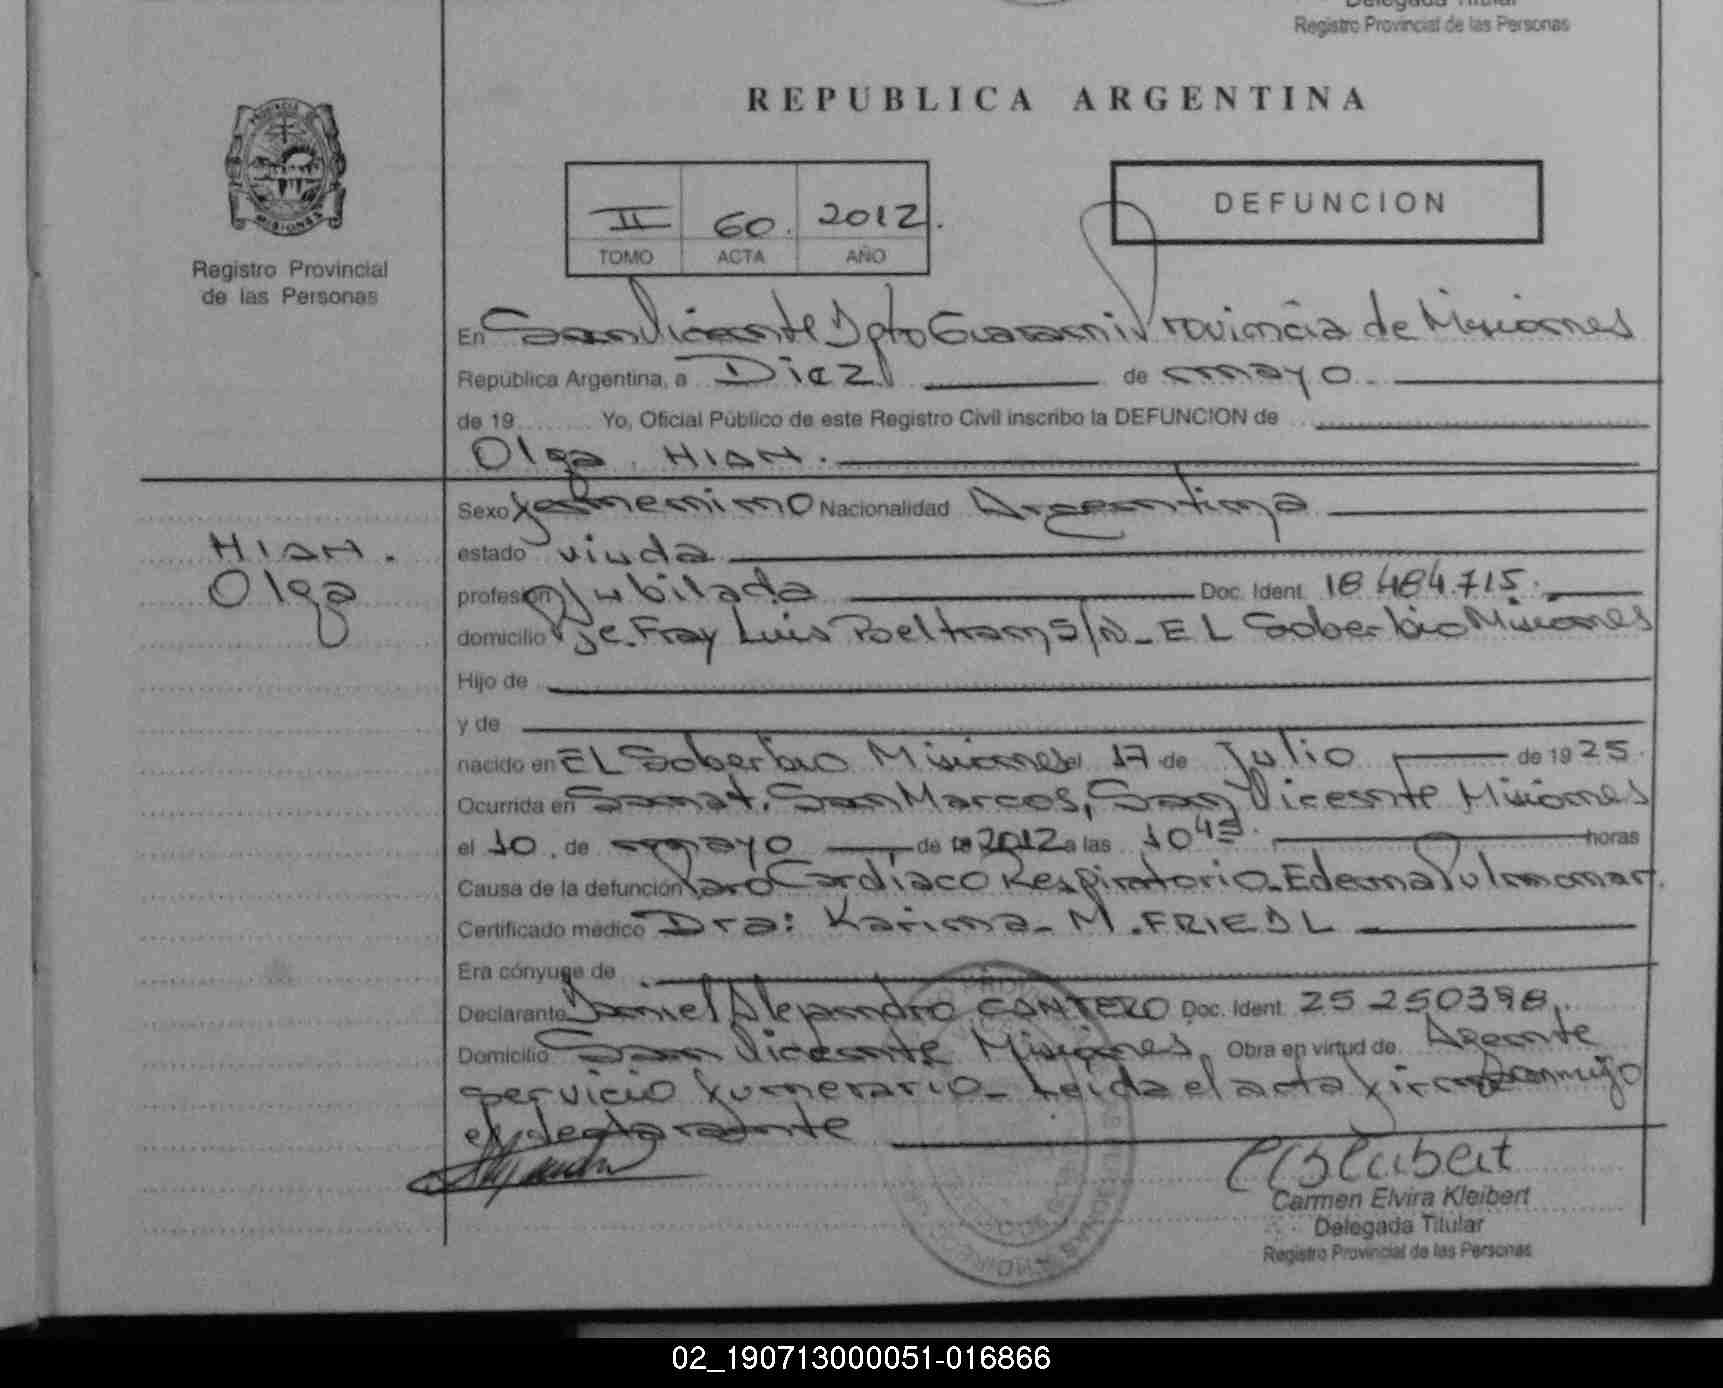 Delegada Titular
Registro Provincial de las Personas
REPUBLICA ARGENTINA
PROVINCIA DE MISIONES
Registro Provincial
de las Personas
II 60. 2012.
TOMO ACTA AÑO
DEFUNCION
En San Vicente Dpto Guarani Provincia de Misiones
República Argentina, a Diez de mayo
de 19 Yo, Oficial Público de este Registro Civil inscribo la DEFUNCION de
Olga HIAN.
HIAN.
Olga
Sexo femenino Nacionalidad Argentina
estado viuda
profesión Jubilada Doc. Ident. 18.484.715.
domicilio Fray Luis Beltran S/N - EL Soberbio Misiones
Hijo de
y de
nacido en EL Soberbio Misiones el 17 de Julio de 1925.
Ocurrida en Sanat. San Marcos, San Vicente Misiones
el 10. de mayo de 2012 a las 10 45. horas
Causa de la defunción Paro Cardíaco Respiratorio - Edema Pulmonar.
Certificado médico Dra: Karina - M. FRIEDL
Era cónyuge de
Declarante Daniel Alejandro CANTERO Doc. Ident. 25 250398.
Domicilio San Vicente Misiones, Obra en virtud de Agente
servicio funerario - Leida el acta firma conmigo
el declarante
Carmen Elvira Kleibert
Delegada Titular
Registro Provincial de las Personas
02_190713000051-016866